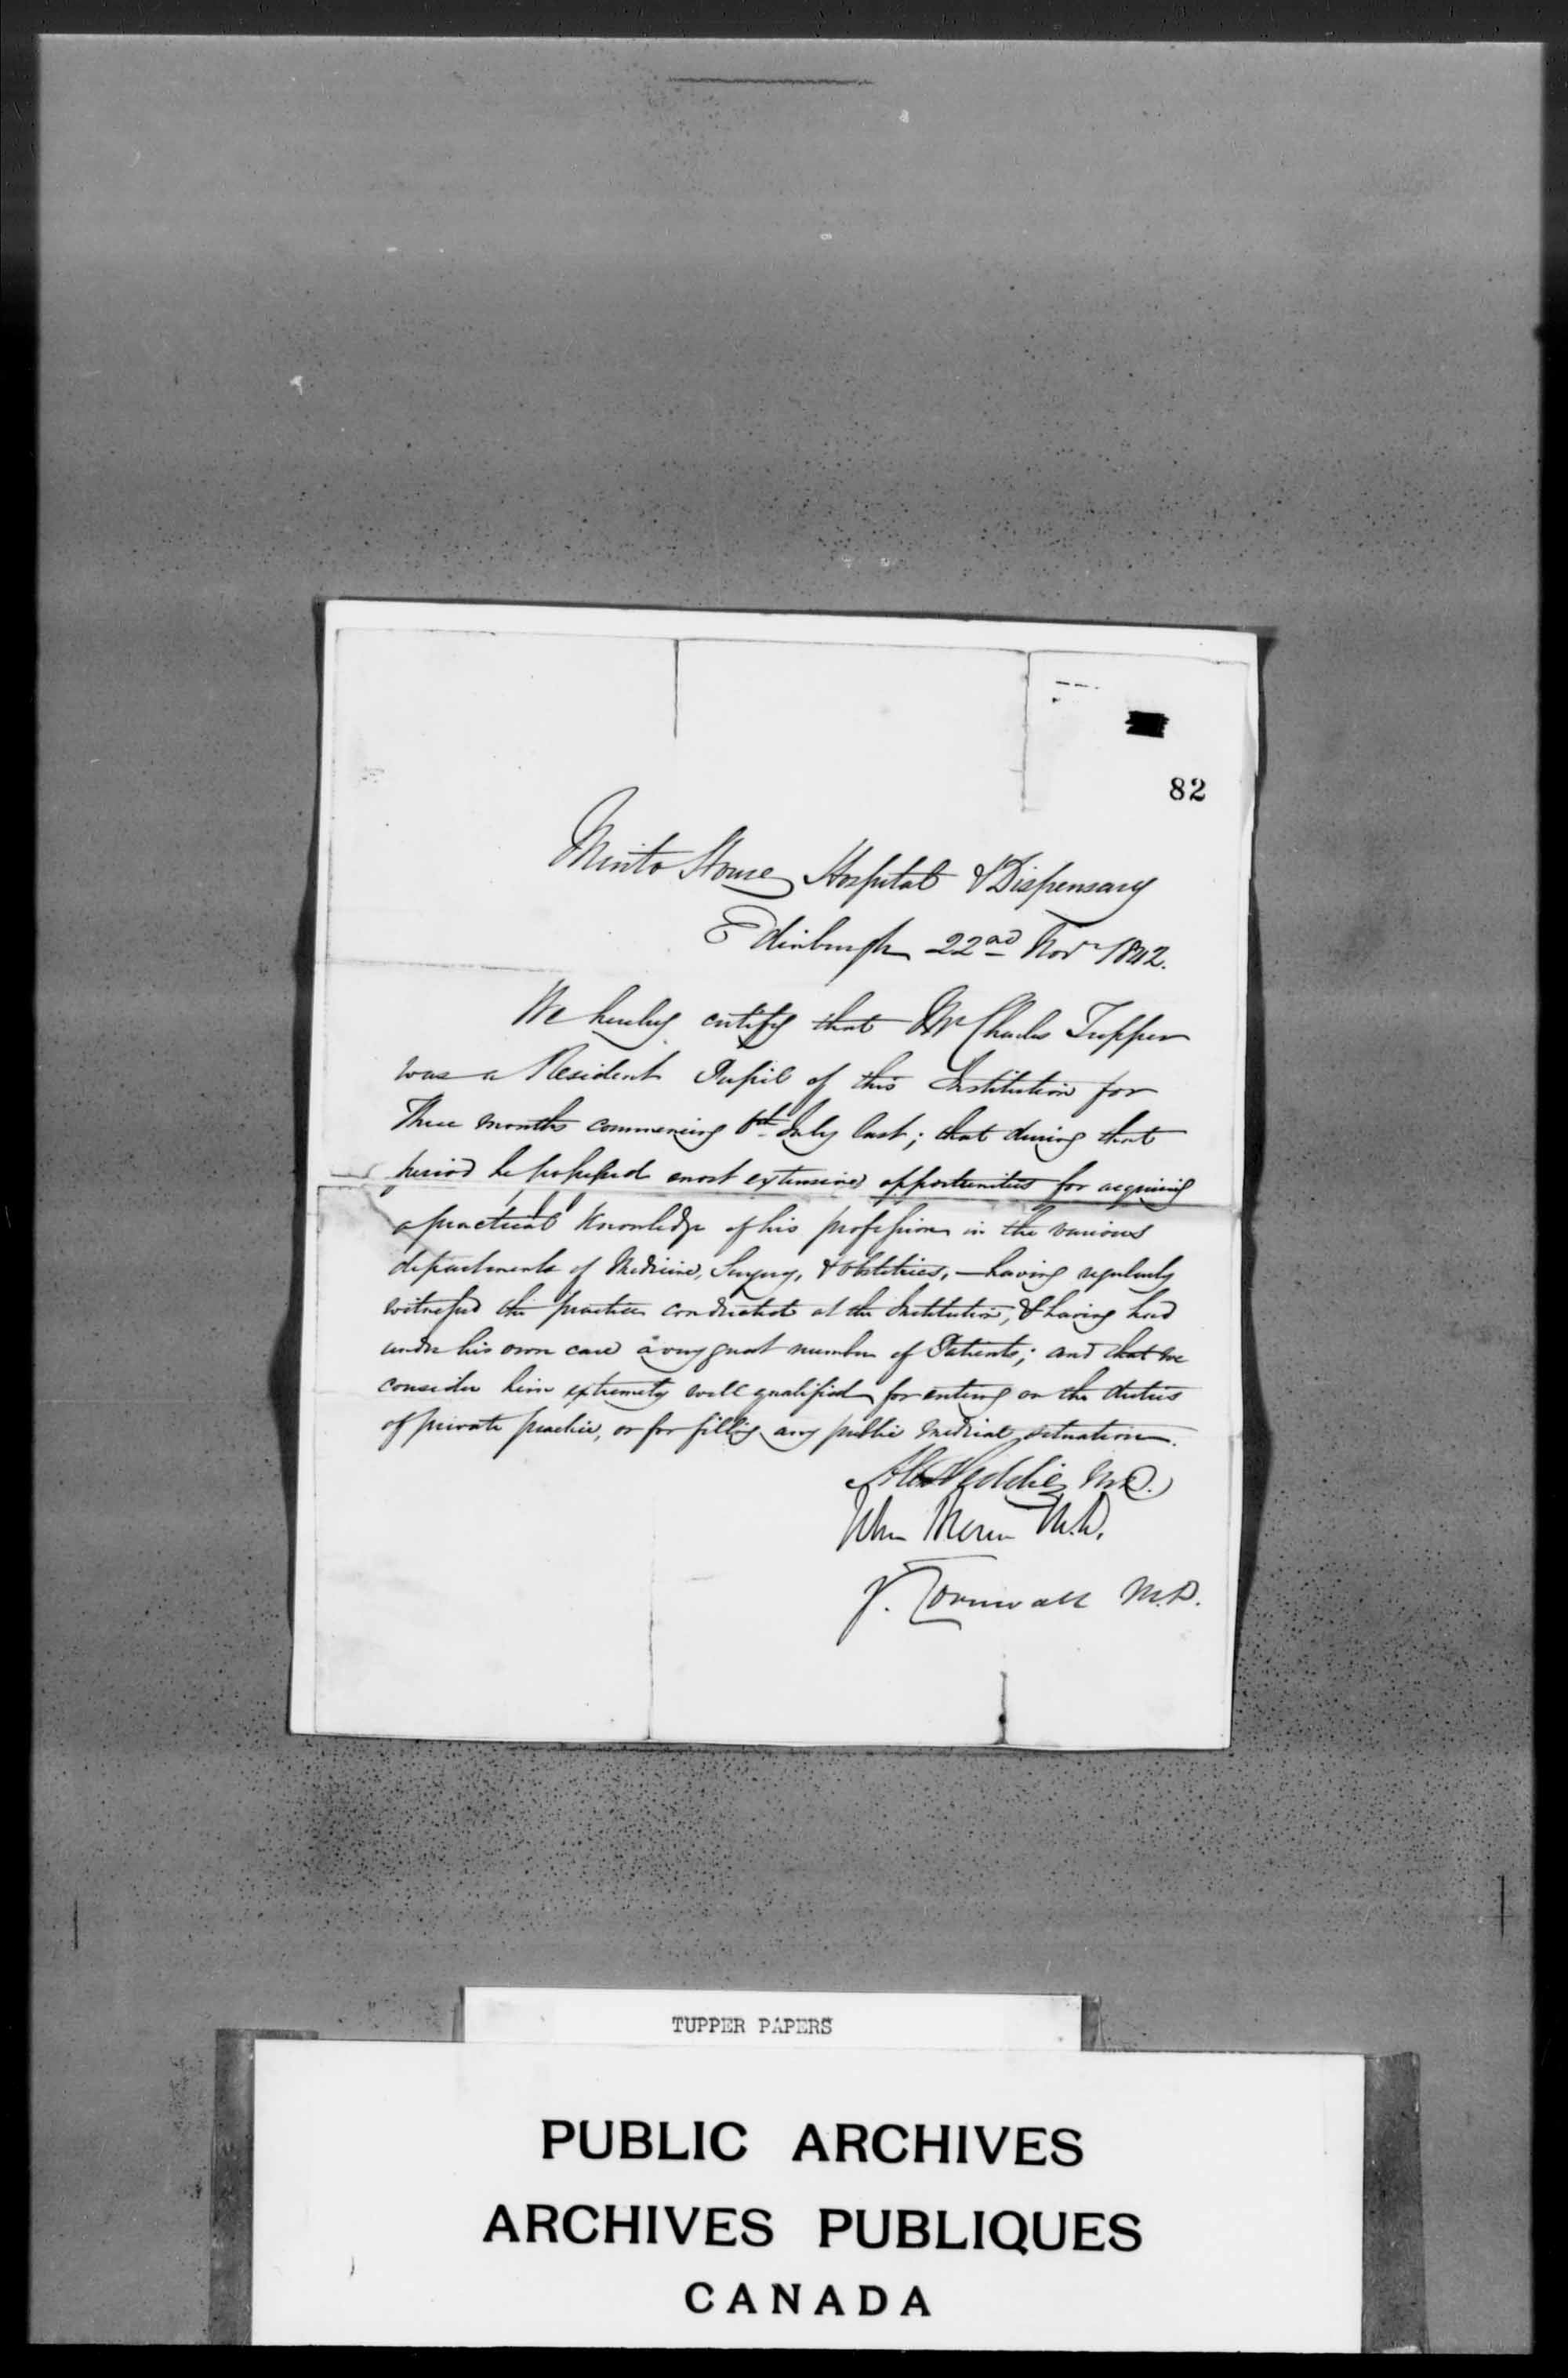 82
Minto House Hospital & Dispensary
Edinburgh 22nd Novr 1842.
We hereby certify that Mr Charles Tupper
was a Resident Pupil of this Institution for
Three months commencing 6th July last; that during that
period he possessed most extensive opportunities for acquiring
a practical Knowledge of his profession in the various
departments of Medicine, Surgery, & Obstetrics, — having regularly
witnessed the practice conducted at the Institution, & having had
under his own care a very great number of Patients; and that we
consider him extremely well qualified for entering on the duties
of private practice, or for filling any public medical situation.
Alex Peddie M.D.
John M.D.
J. Cornwall M.D.
TUPPER PAPERS
PUBLIC ARCHIVES
ARCHIVES PUBLIQUES
CANADA